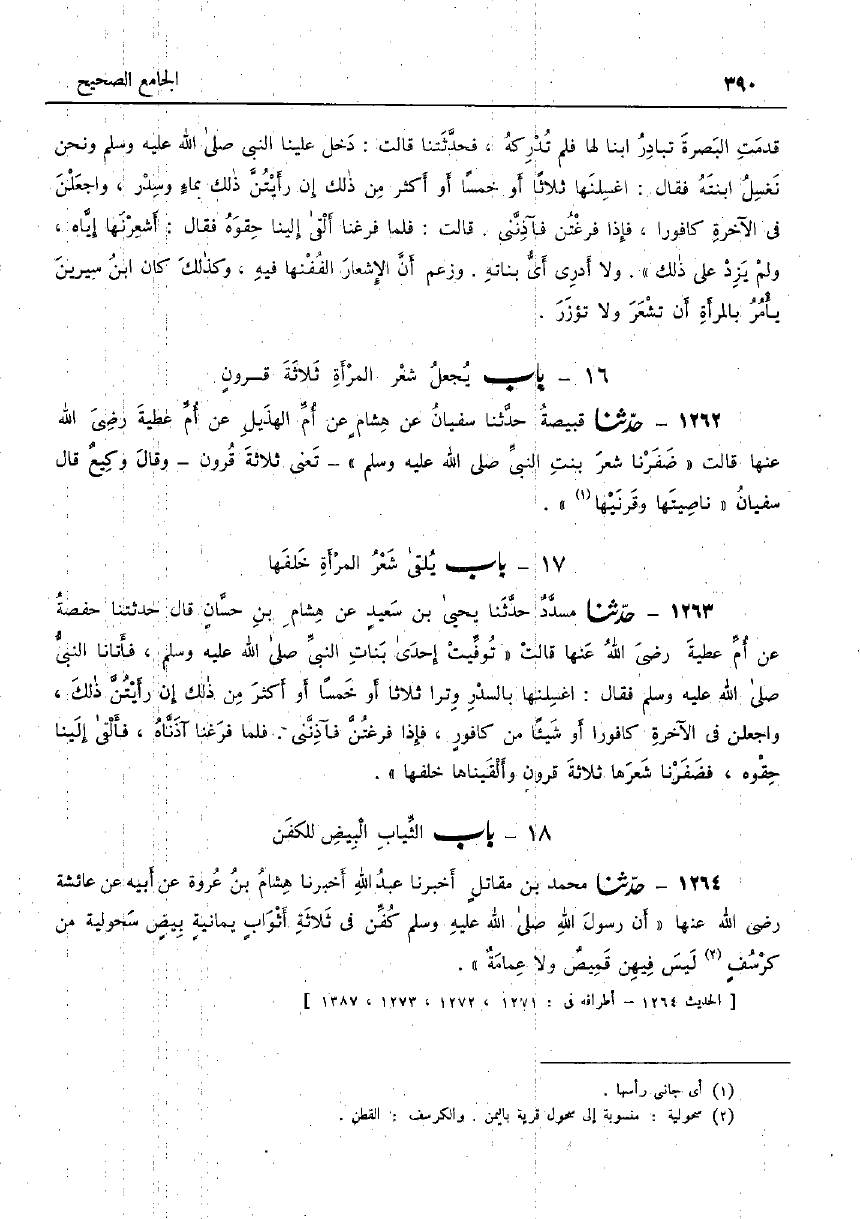 ٣٩٠ الجامع الصحيح
قدمَتِ البَصرةَ تبادِرُ ابنا لها فلم تُدْرِكهُ ، فحدَّثَتنا قالت : دَخل علينا النبى صلىٰ الله عليه وسلم ونحن
نَغسِلُ ابنتَهُ فقال : اغسِلنَها ثلاثًا أو خمسًا أو أكثر مِن ذلك إن رأَيْتُنَّ ذٰلك بماءٍ وسِدْر ، واجعَلْنَ
فى الآخرةِ كافورا ، فإذا فرغْتُن فآذِنَّنى . قالت : فلما فرغنا ألْقىٰ إلينا حِقوَهُ فقال : أشعِرْنَها إيَّاه ،
ولمْ يَزِدْ على ذٰلك » . ولا أدرى أىُّ بناتهِ . وزعم أنَّ الإشعارَ الفُفْنها فيهِ ، وكذٰلكَ كان ابنُ سِيرينَ
يأمُرُ بالمرأةِ أن تشْعَرَ ولا تؤزَرَ .
١٦ – باب يُجعلُ شعْر المرْأةِ ثَلاثَةَ قـرونٍ
١٢٦٢ – حدّثنا قبيصةُ حدَّثنا سفيانُ عن هِشام عن أُمِّ الهذَيلِ عن أُمِّ عَطيةَ رضِىَ الله
عنها قالت « ضَفَرْنا شعرَ بنتِ النبىِّ صلى الله عليه وسلم » – تَعنى ثلاثةَ قُرون – وقالَ وكِيعٌ قال
سفيانُ « ناصِيتَها وقَرنَيْها (١) » .
١٧ – باب يُلقىٰ شَعْرُ المرْأةِ خَلفَها
١٢٦٣ – حدّثنا مسدَّدٌ حدَّثَنا يحيىٰ بن سَعيدٍ عن هِشامِ بنِ حسَّانٍ قال حدثتنا حفصةُ
عن أُمِّ عطيةَ رضىَ اللهُ عَنها قالتْ « تُوفِّيتْ إحدَىٰ بَناتِ النبىِّ صلىٰ الله عليه وسلم ، فأتانا النبىُّ
صلىٰ الله عليه وسلم فقال : اغسِلنها بالسدْرِ وترا ثلاثا أو خَمسًا أو أكثرَ مِن ذٰلك إن رأيْتُنَّ ذٰلكَ ،
واجعلن فى الآخرةِ كافورا أو شَيئًا من كافورٍ ، فإذا فرغتُنَّ فآذِنَّنى . فلما فرَغنا آذَنَّاهُ ، فألْقىٰ إلَينا
حِقْوه ، فضَفَرْنا شَعرَها ثلاثةَ قرونٍ وألْقَيناها خلفها » .
١٨ – باب الثِّيابِ الْبِيضِ للكفَن
١٢٦٤ – حدّثنا محمد بن مقاتلٍ أخبرنا عبدُ اللهِ أخبرنا هِشامُ بنُ عُروة عن أبيه عن عائشة
رضى الله عنها « أن رسولَ اللهِ صلىٰ الله عليهِ وسلم كُفِّن فى ثلاثةِ أثْوابٍ يمانيةٍ بِيضٍ سَحولية من
كرْسُفٍ (٢) لَيسَ فيهِن قَميصٌ ولا عِمامَةٌ » .
[ الحديث ١٢٦٤ – أطرافه فى : ١٢٧١ ، ١٢٧٢ ، ١٢٧٣ ، ١٣٨٧ ]
(١) أى جانبى رأسها .
(٢) سحولية : منسوبة إلى سحول قرية باليمن . والكرسف : القطن .